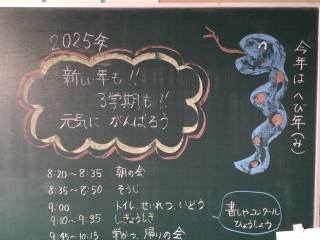 2025年
新しい年も!!
3学期も!!
元気に がんばろう
今年は へび年(み)
8:20〜8:35 朝の会
8:35〜8:50 そうじ
9:00 トイレ、せいれつ、いどう
9:10〜9:35 しぎょうしき
9:45〜10:15 学かつ、帰りの会
書しゃコンクール
ひょうしょう